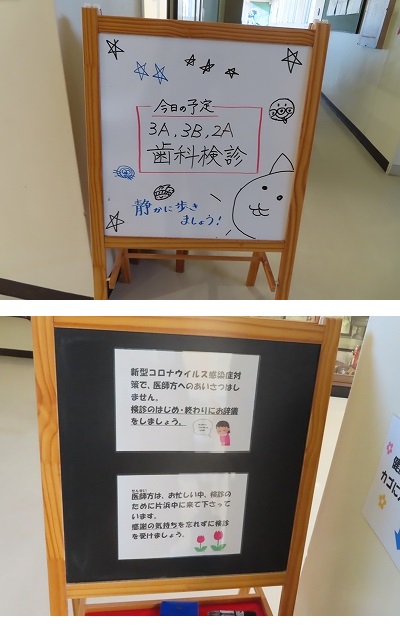 今日の予定
3A, 3B, 2A
歯科検診
静かに歩き
ましょう!
新型コロナウイルス感染症対
策で、医師方へのあいさつはし
ません。
検診のはじめ・終わりにお辞儀
をしましょう。
医師方は、お忙しい中、検診の
ために片浜中に来て下さって
います。
感謝の気持ちを忘れずに検診
を受けましょう。
カゴに入